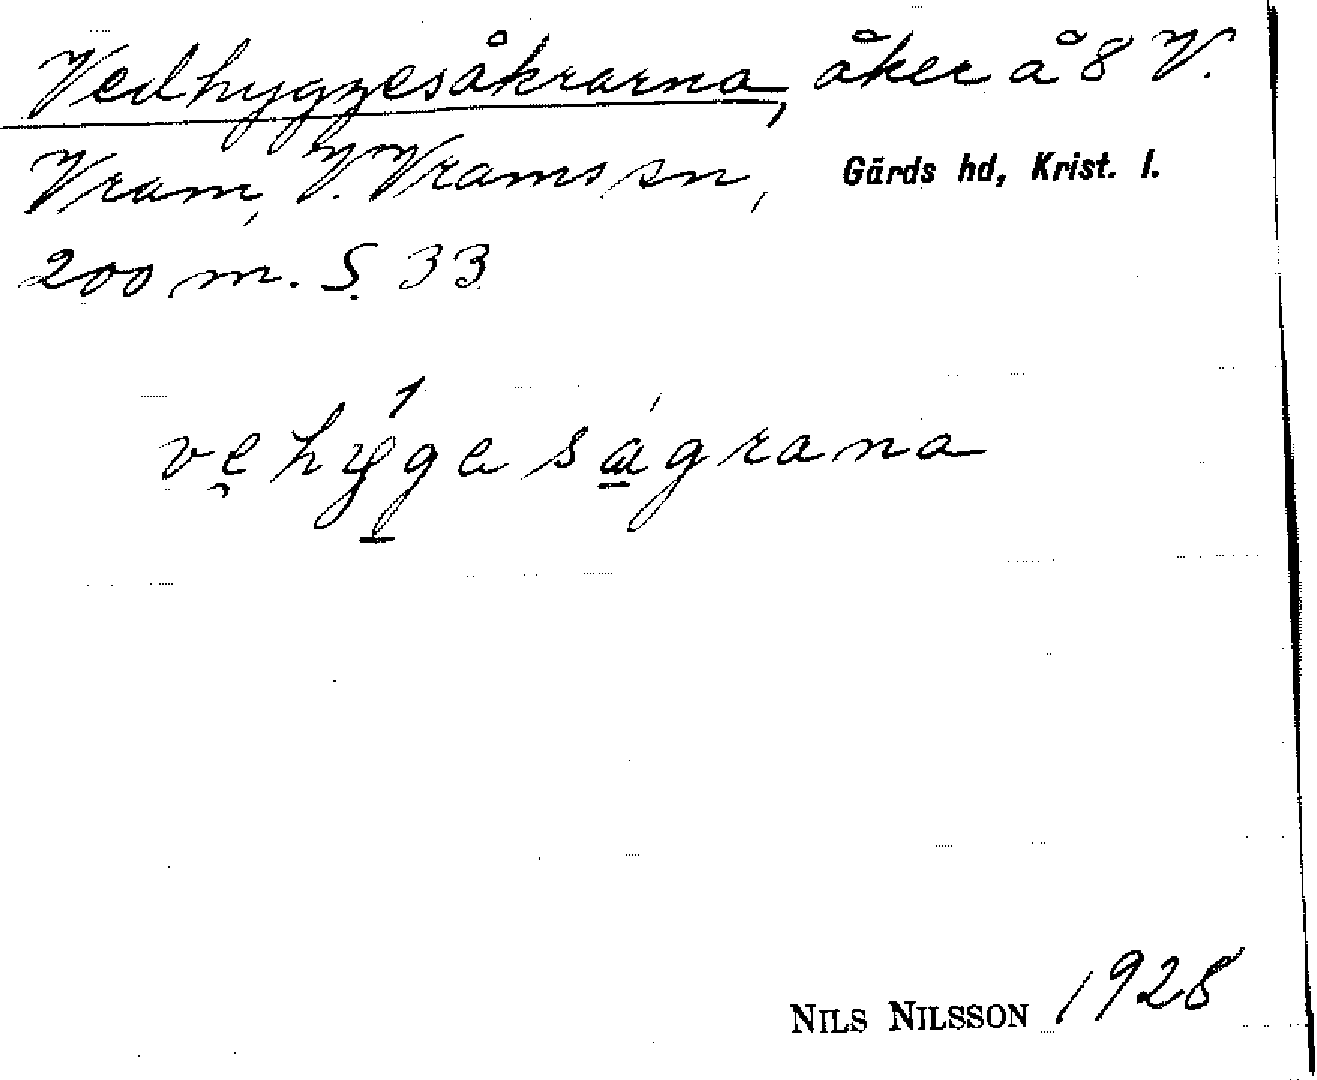 Vedhyggesåkrarna, åker å 8 V.
Vram, V. Vrams sn, Gärds hd, Krist. l.
200 m. S. 33
vehygesagrana
NILS NILSSON 1928